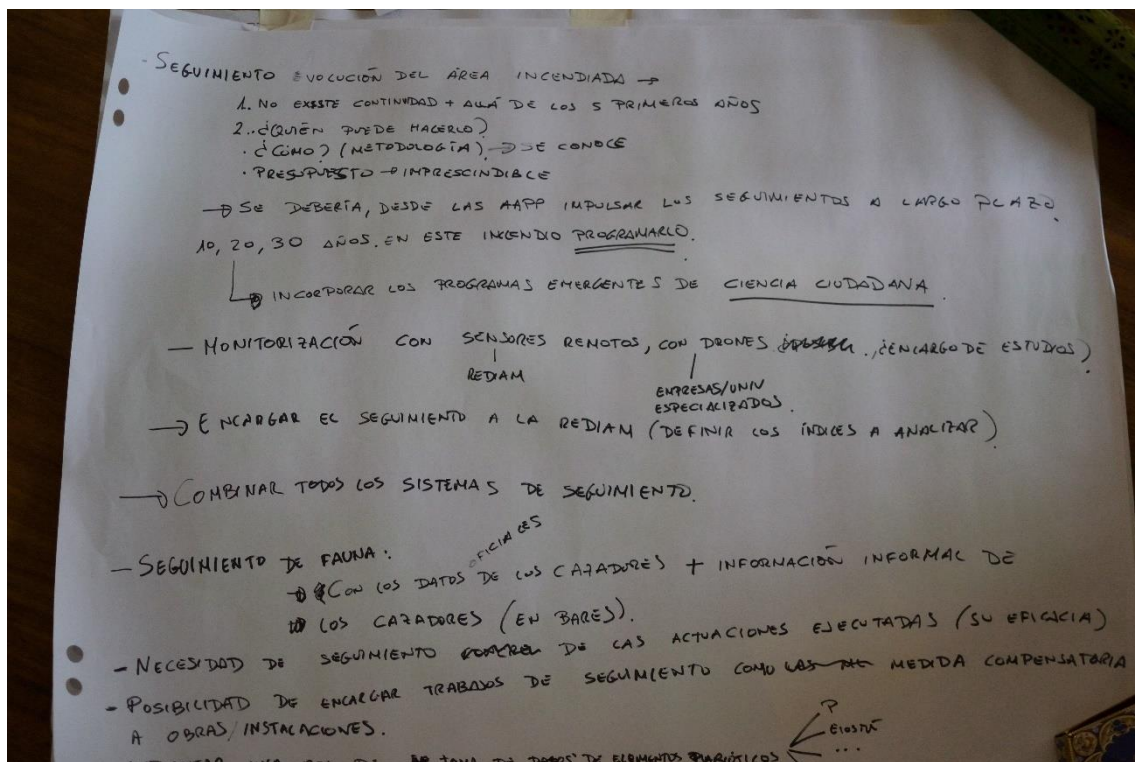 - SEGUIMIENTO EVOLUCIÓN DEL ÁREA INCENDIADA →
1. NO EXISTE CONTINUIDAD + ALLÁ DE LOS 5 PRIMEROS AÑOS
2. ¿QUIÉN PUEDE HACERLO?
· ¿CÓMO? (METODOLOGÍA) → SE CONOCE
· PRESUPUESTO → IMPRESCINDIBLE
→ SE DEBERÍA, DESDE LAS AAPP IMPULSAR LOS SEGUIMIENTOS A LARGO PLAZO.
10, 20, 30 AÑOS. EN ESTE INCENDIO PROGRAMARLO.
→ INCORPORAR LOS PROGRAMAS EMERGENTES DE CIENCIA CIUDADANA
- MONITORIZACIÓN CON SENSORES REMOTOS, CON DRONES (ENCARGO DE ESTUDIOS)
REDIAM
EMPRESAS/UNIV
ESPECIALIZADOS.
→ ENCARGAR EL SEGUIMIENTO A LA REDIAM (DEFINIR LOS ÍNDICES A ANALIZAR)
→ COMBINAR TODOS LOS SISTEMAS DE SEGUIMIENTO.
- SEGUIMIENTO DE FAUNA:
OFICIALES
→ CON LOS DATOS DE LOS CAZADORES + INFORMACIÓN INFORMAL DE
LOS CAZADORES (EN BARES).
- NECESIDAD DE SEGUIMIENTO DE LAS ACTUACIONES EJECUTADAS (SU EFICACIA)
- POSIBILIDAD DE ENCARGAR TRABAJOS DE SEGUIMIENTO COMO MEDIDA COMPENSATORIA
A OBRAS/INSTALACIONES.
P
EROSIÓN
...
TOMA DE DATOS DE ELEMENTOS